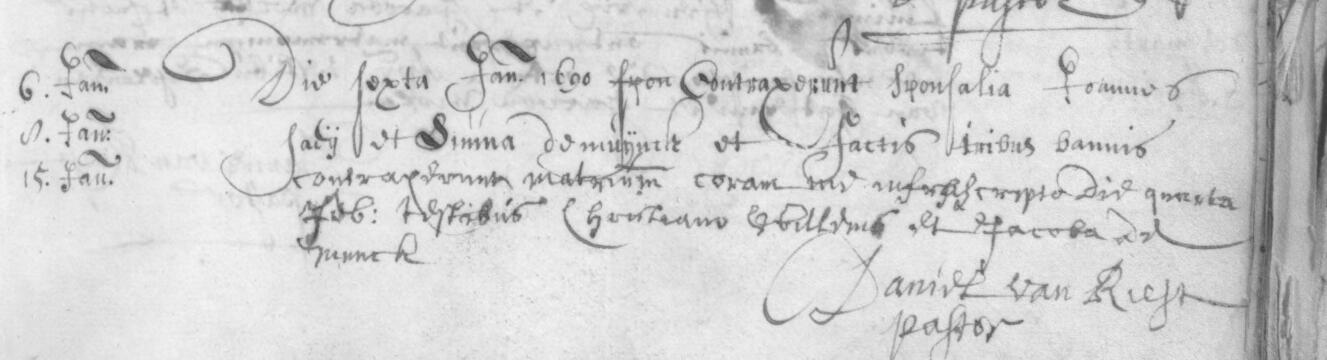 pastor
6. Jan.
8. Jan.
15. Jan.
Die sexta Jan. 1690 spon Contraxerunt sponsalia Joannes
sadij et Livina demuynck et factis tribus bannis
contraxerunt matrium coram me infrascripto die quarta
Feb: testibus Christiano Willems et Jacoba de
munck
Daniel van Riest
pastor